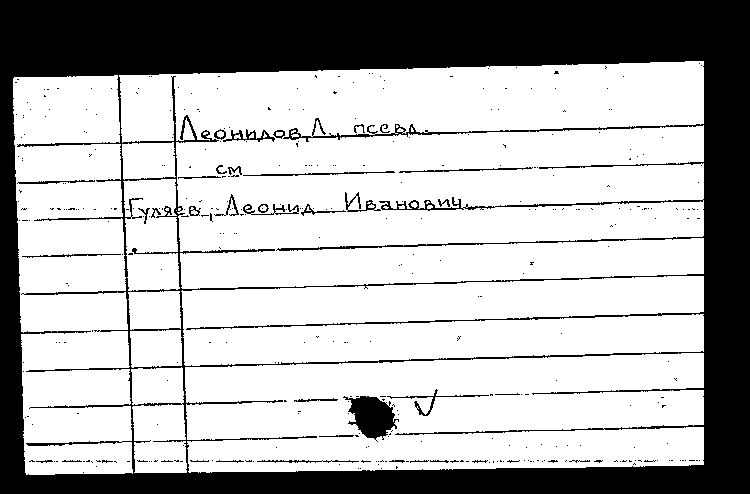 Леонидов, Л., псевд.
см
Гуляев, Леонид Иванович.